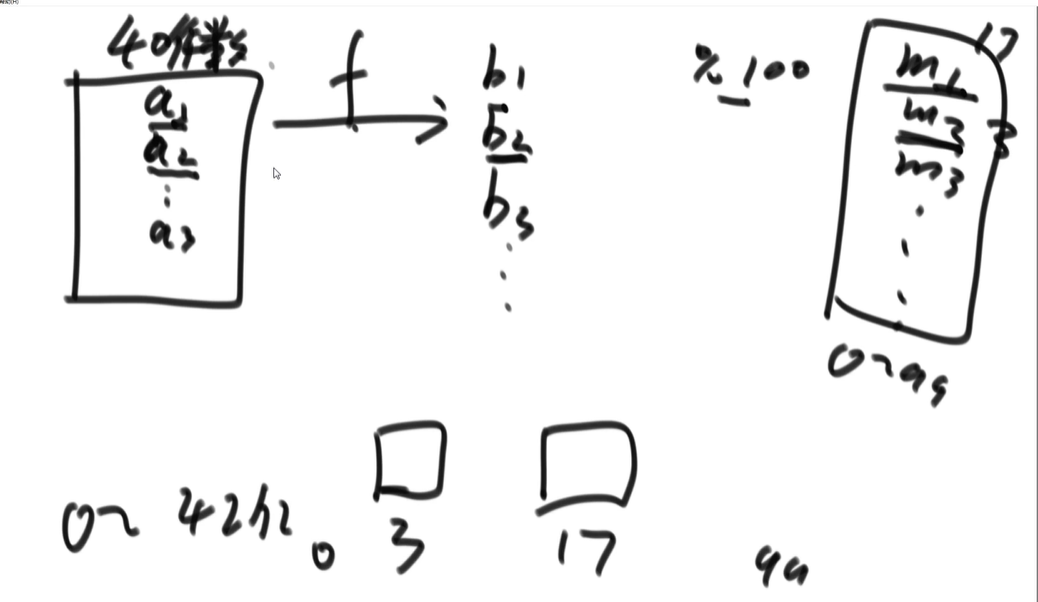 40亿数
a1
a2
a3
f
b1
b2
b3
% 100
17
m1
m3
3
m3
0~99
0~42亿
0
3
17
99